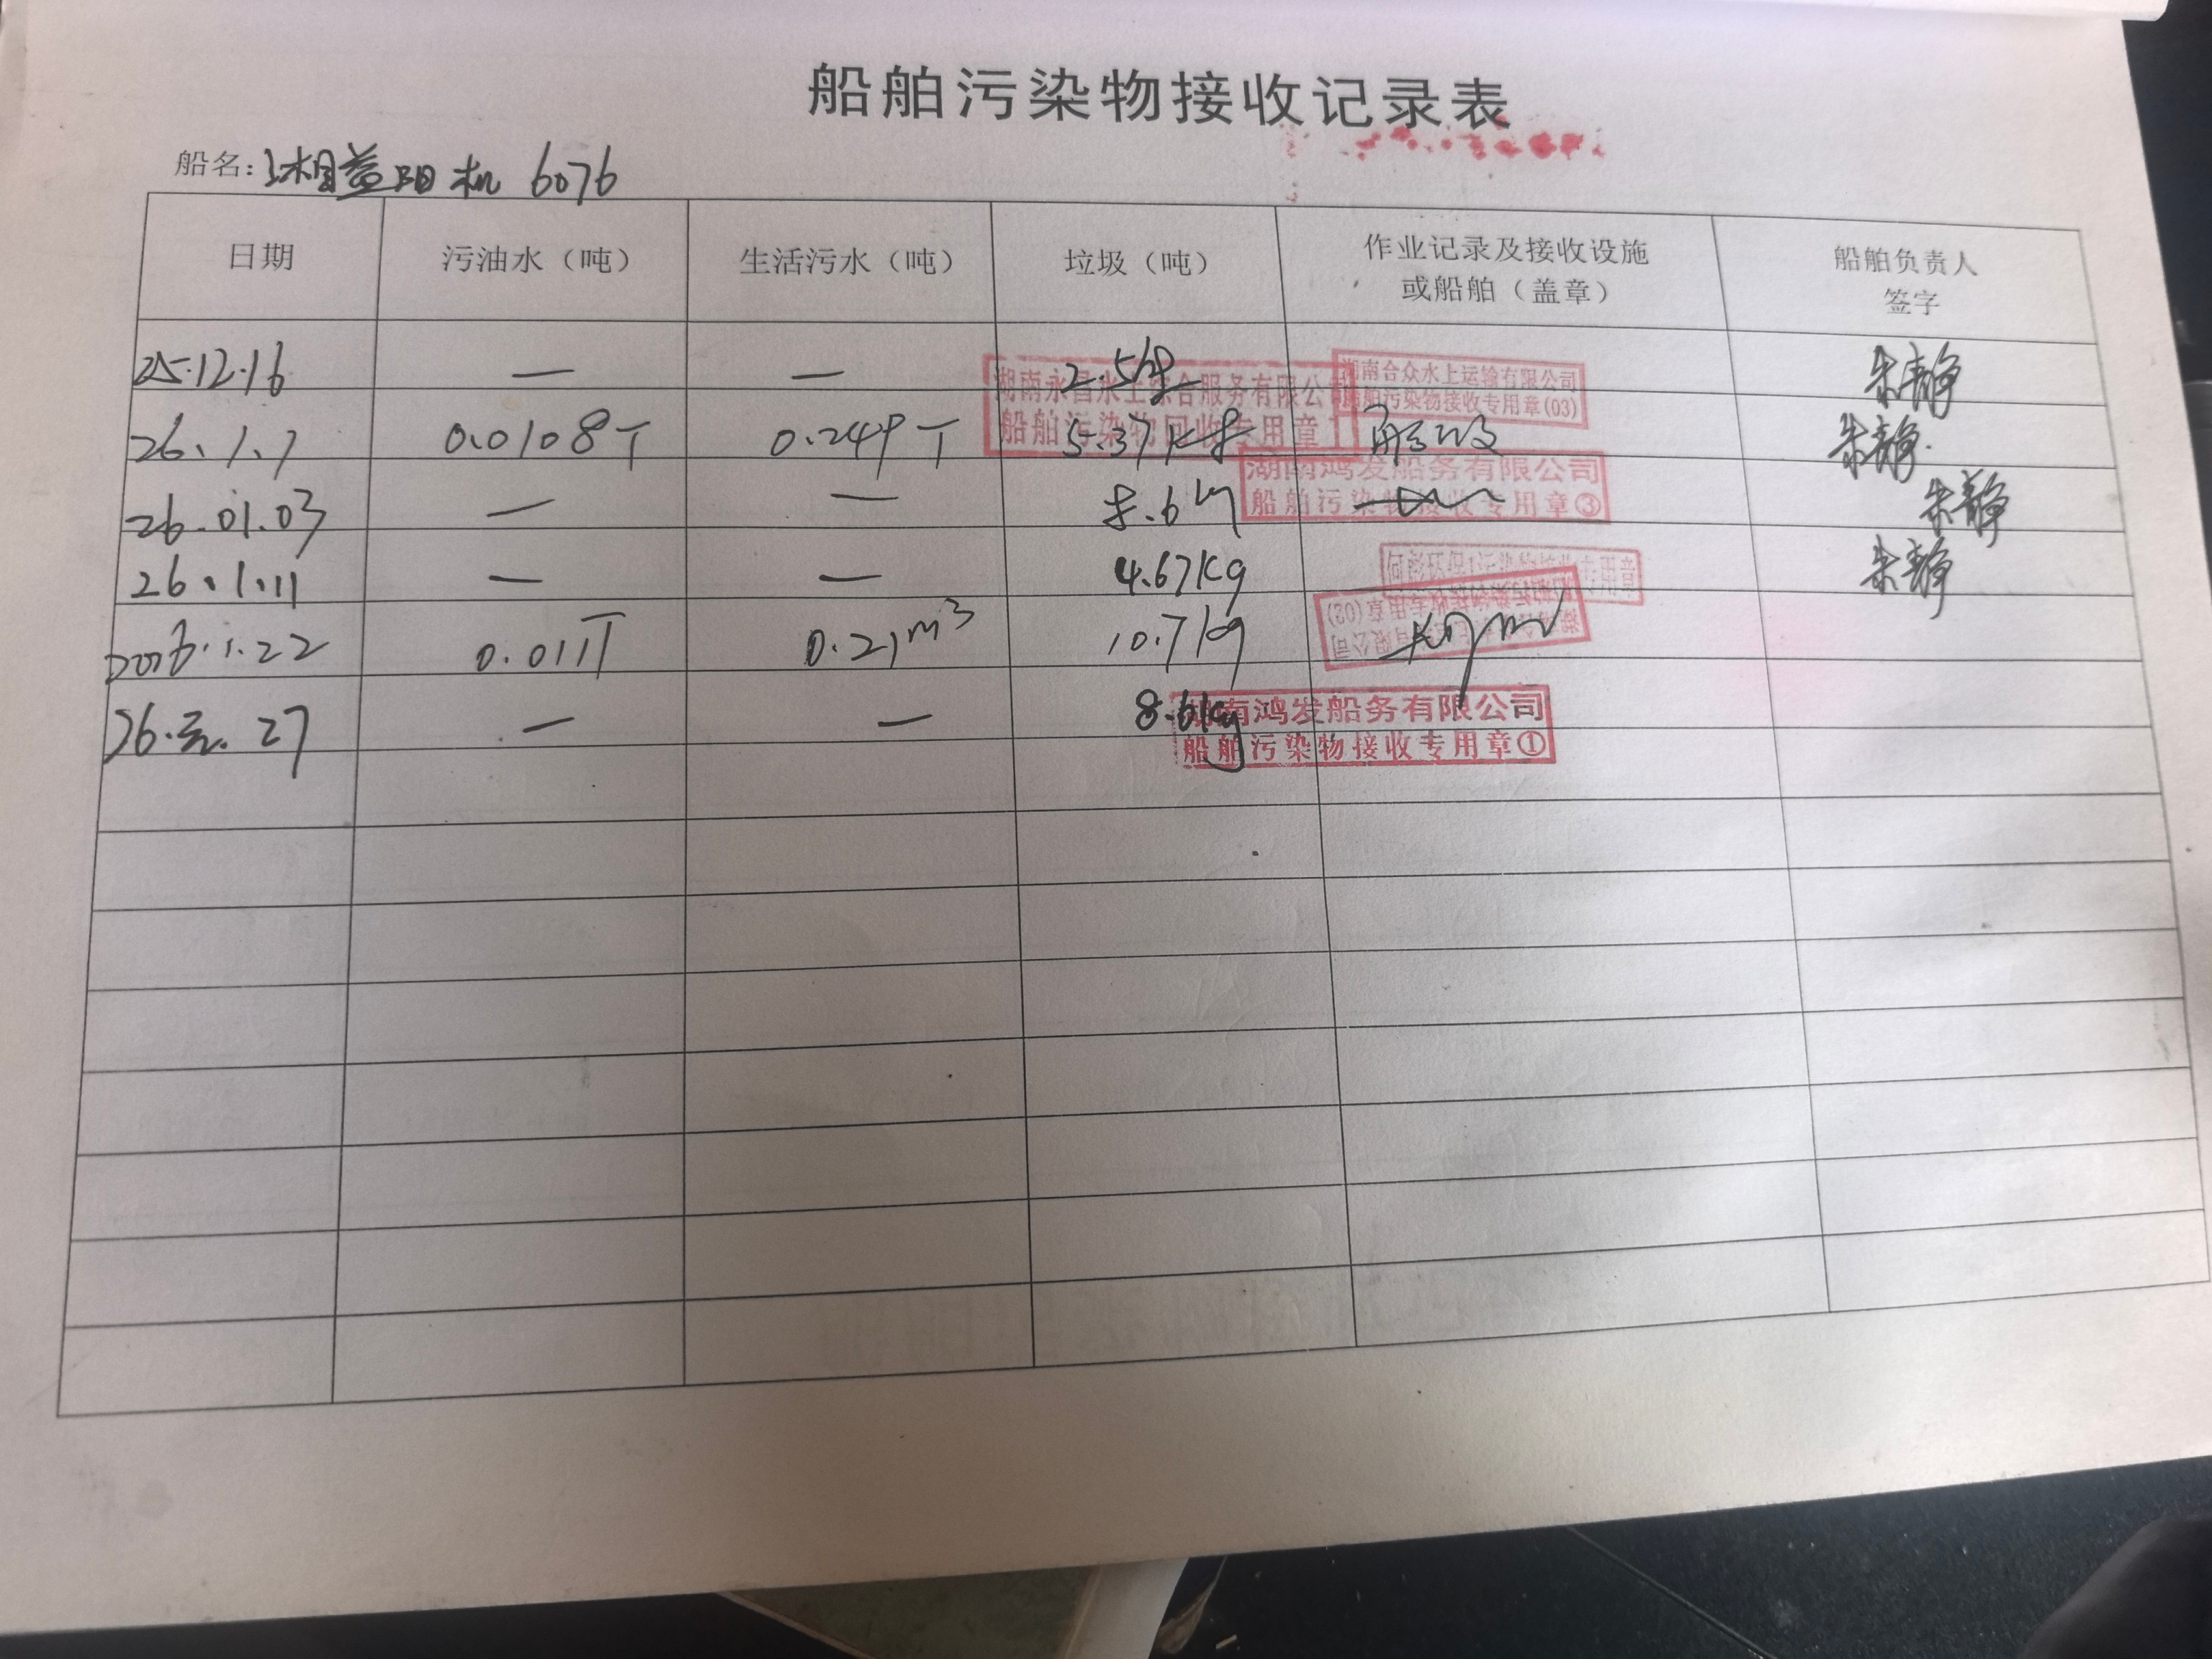 船舶污染物接收记录表
船名:湘益阳机 6076
日期 污油水（吨） 生活污水（吨） 垃圾（吨） 作业记录及接收设施或船舶（盖章） 船舶负责人签字
25.12.16 — — 2.5 朱静
湖南永昌水上综合服务有限公司
船舶污染物回收专用章
湖南合众水上运输有限公司
船舶污染物接收专用章(03)
26.1.1 0.0108T 0.249T 5.37kg 朱静.
26.01.03 — — .6kg 朱静
湖南鸿发船务有限公司
船舶污染物接收专用章③
26.1.11 — — 4.67Kg 朱静
2026.1.22 0.011T 0.21m³ 10.7kg
26.元.27 — — 8.6kg
湖南鸿发船务有限公司
船舶污染物接收专用章①